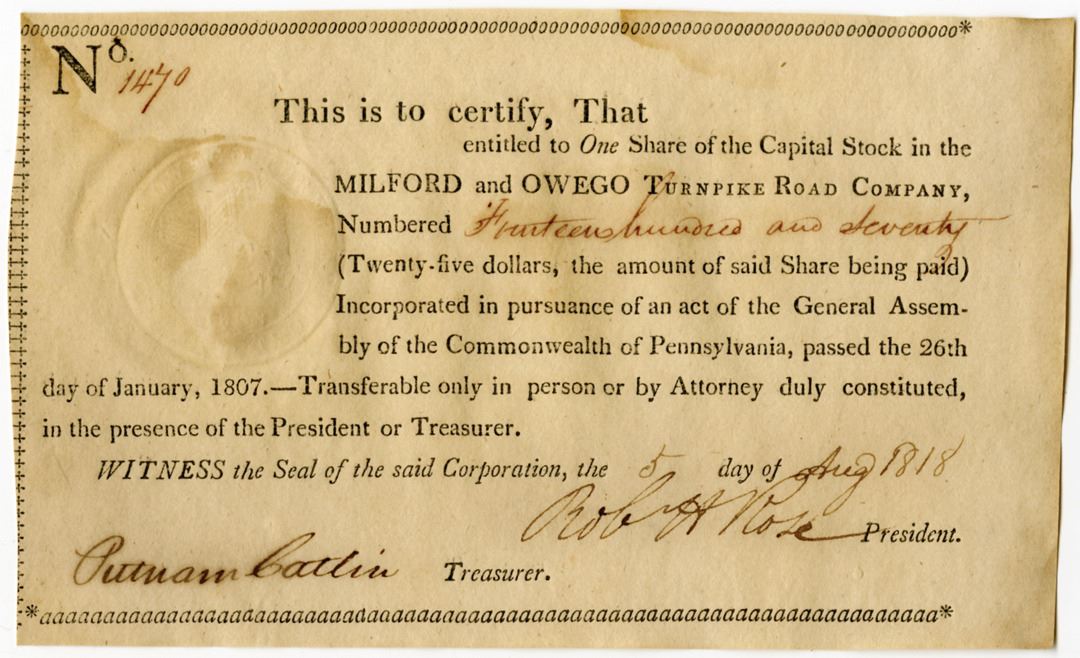 No. 1470
This is to certify, That
entitled to One Share of the Capital Stock in the
MILFORD and OWEGO TURNPIKE ROAD COMPANY,
Numbered Fourteen hundred and seventy
(Twenty-five dollars, the amount of said Share being paid)
Incorporated in pursuance of an act of the General Assem-
bly of the Commonwealth of Pennsylvania, passed the 26th
day of January, 1807.—Transferable only in person or by Attorney duly constituted,
in the presence of the President or Treasurer.
WITNESS the Seal of the said Corporation, the 5 day of Aug 1818
Rob H Rose President.
Putnam Catlin Treasurer.